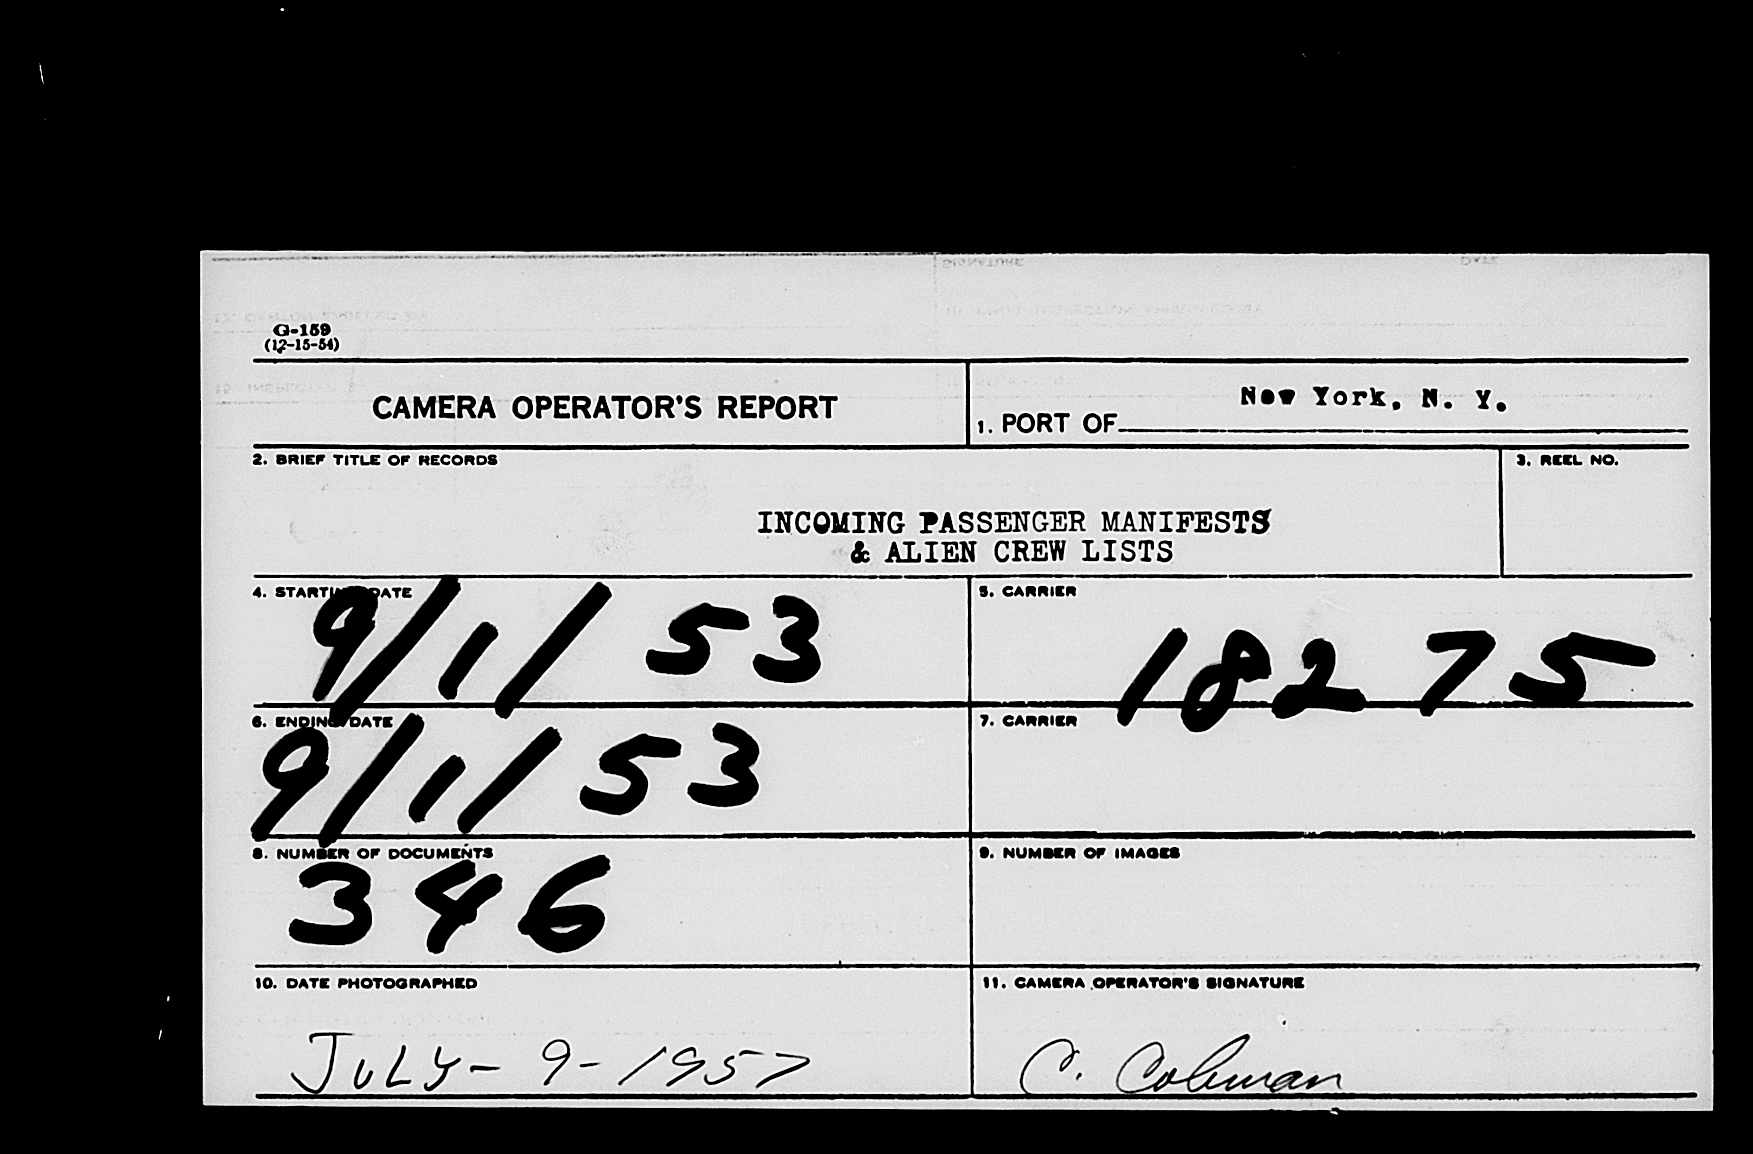 G-159
(12-15-54)
CAMERA OPERATOR'S REPORT
1. PORT OF New York, N. Y.
2. BRIEF TITLE OF RECORDS
3. REEL NO.
INCOMING PASSENGER MANIFESTS
& ALIEN CREW LISTS
4. STARTING DATE
9/1/53
5. CARRIER
18275
6. ENDING DATE
9/1/53
7. CARRIER
8. NUMBER OF DOCUMENTS
346
9. NUMBER OF IMAGES
10. DATE PHOTOGRAPHED
JULY-9-1957
11. CAMERA OPERATOR'S SIGNATURE
C. Coleman